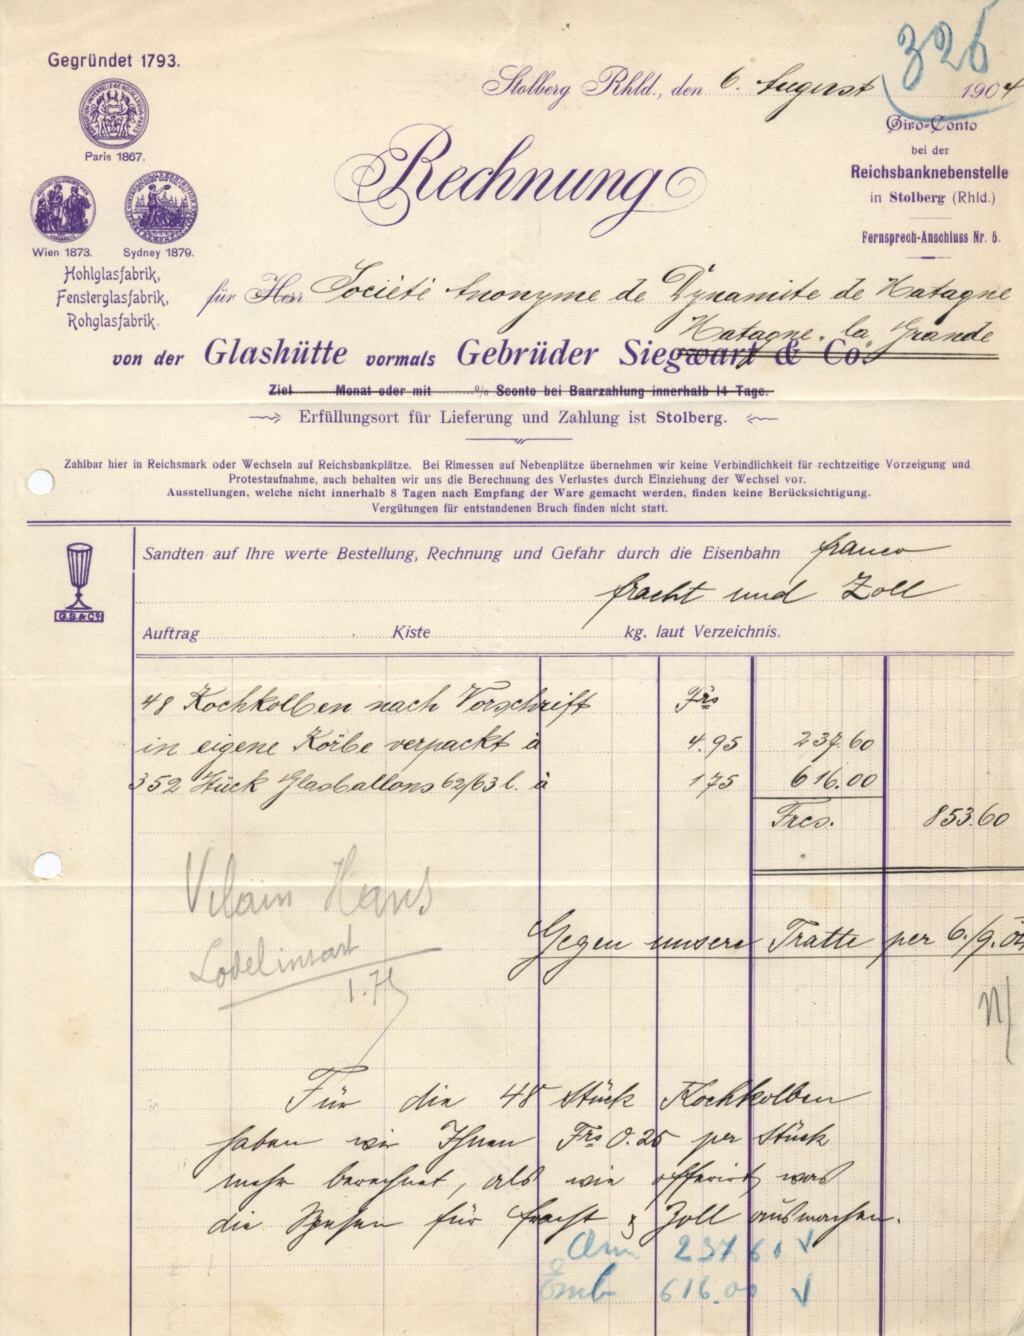 326
Gegründet 1793.
Stolberg Rhld., den 6. August 1904
Paris 1867.
Giro-Conto
bei der
Reichsbanknebenstelle
in Stolberg (Rhld.)
Fernsprech-Anschluss Nr. 5.
Rechnung
Wien 1873. Sydney 1879.
Hohlglasfabrik,
Fensterglasfabrik,
Rohglasfabrik.
für Herr Société Anonyme de Dynamite de Matagne
Matagne "la" Grande
von der Glashütte vormals Gebrüder Siegwart & Co.
Ziel Monat oder mit % Sconto bei Baarzahlung innerhalb 14 Tage.
Erfüllungsort für Lieferung und Zahlung ist Stolberg.
Zahlbar hier in Reichsmark oder Wechseln auf Reichsbankplätze. Bei Rimessen auf Nebenplätze übernehmen wir keine Verbindlichkeit für rechtzeitige Vorzeigung und
Protestaufnahme, auch behalten wir uns die Berechnung des Verlustes durch Einziehung der Wechsel vor.
Ausstellungen, welche nicht innerhalb 8 Tagen nach Empfang der Ware gemacht werden, finden keine Berücksichtigung.
Vergütungen für entstandenen Bruch finden nicht statt.
Sandten auf Ihre werte Bestellung, Rechnung und Gefahr durch die Eisenbahn franco
fracht und Zoll
G.S.& Co.
Auftrag Kiste kg. laut Verzeichnis.
48 Kochkolben nach Vorschrift Frs
in eigene Körbe verpackt à 4.95 237.60
352 Stück Glasballons 62/63 l. à 1.75 616.00
Frcs. 853.60
Vilain Hans
Lodelinsart
1.75
Gegen unsere Tratte per 6./9. 04
Für die 48 Stück Kochkolben
haben wir Ihnen Frs 0.25 per Stück
mehr berechnet, als wie offerirt, was
die Spesen für fracht & Zoll ausmachen.
Am 237 60 √
Emb 616.00 √